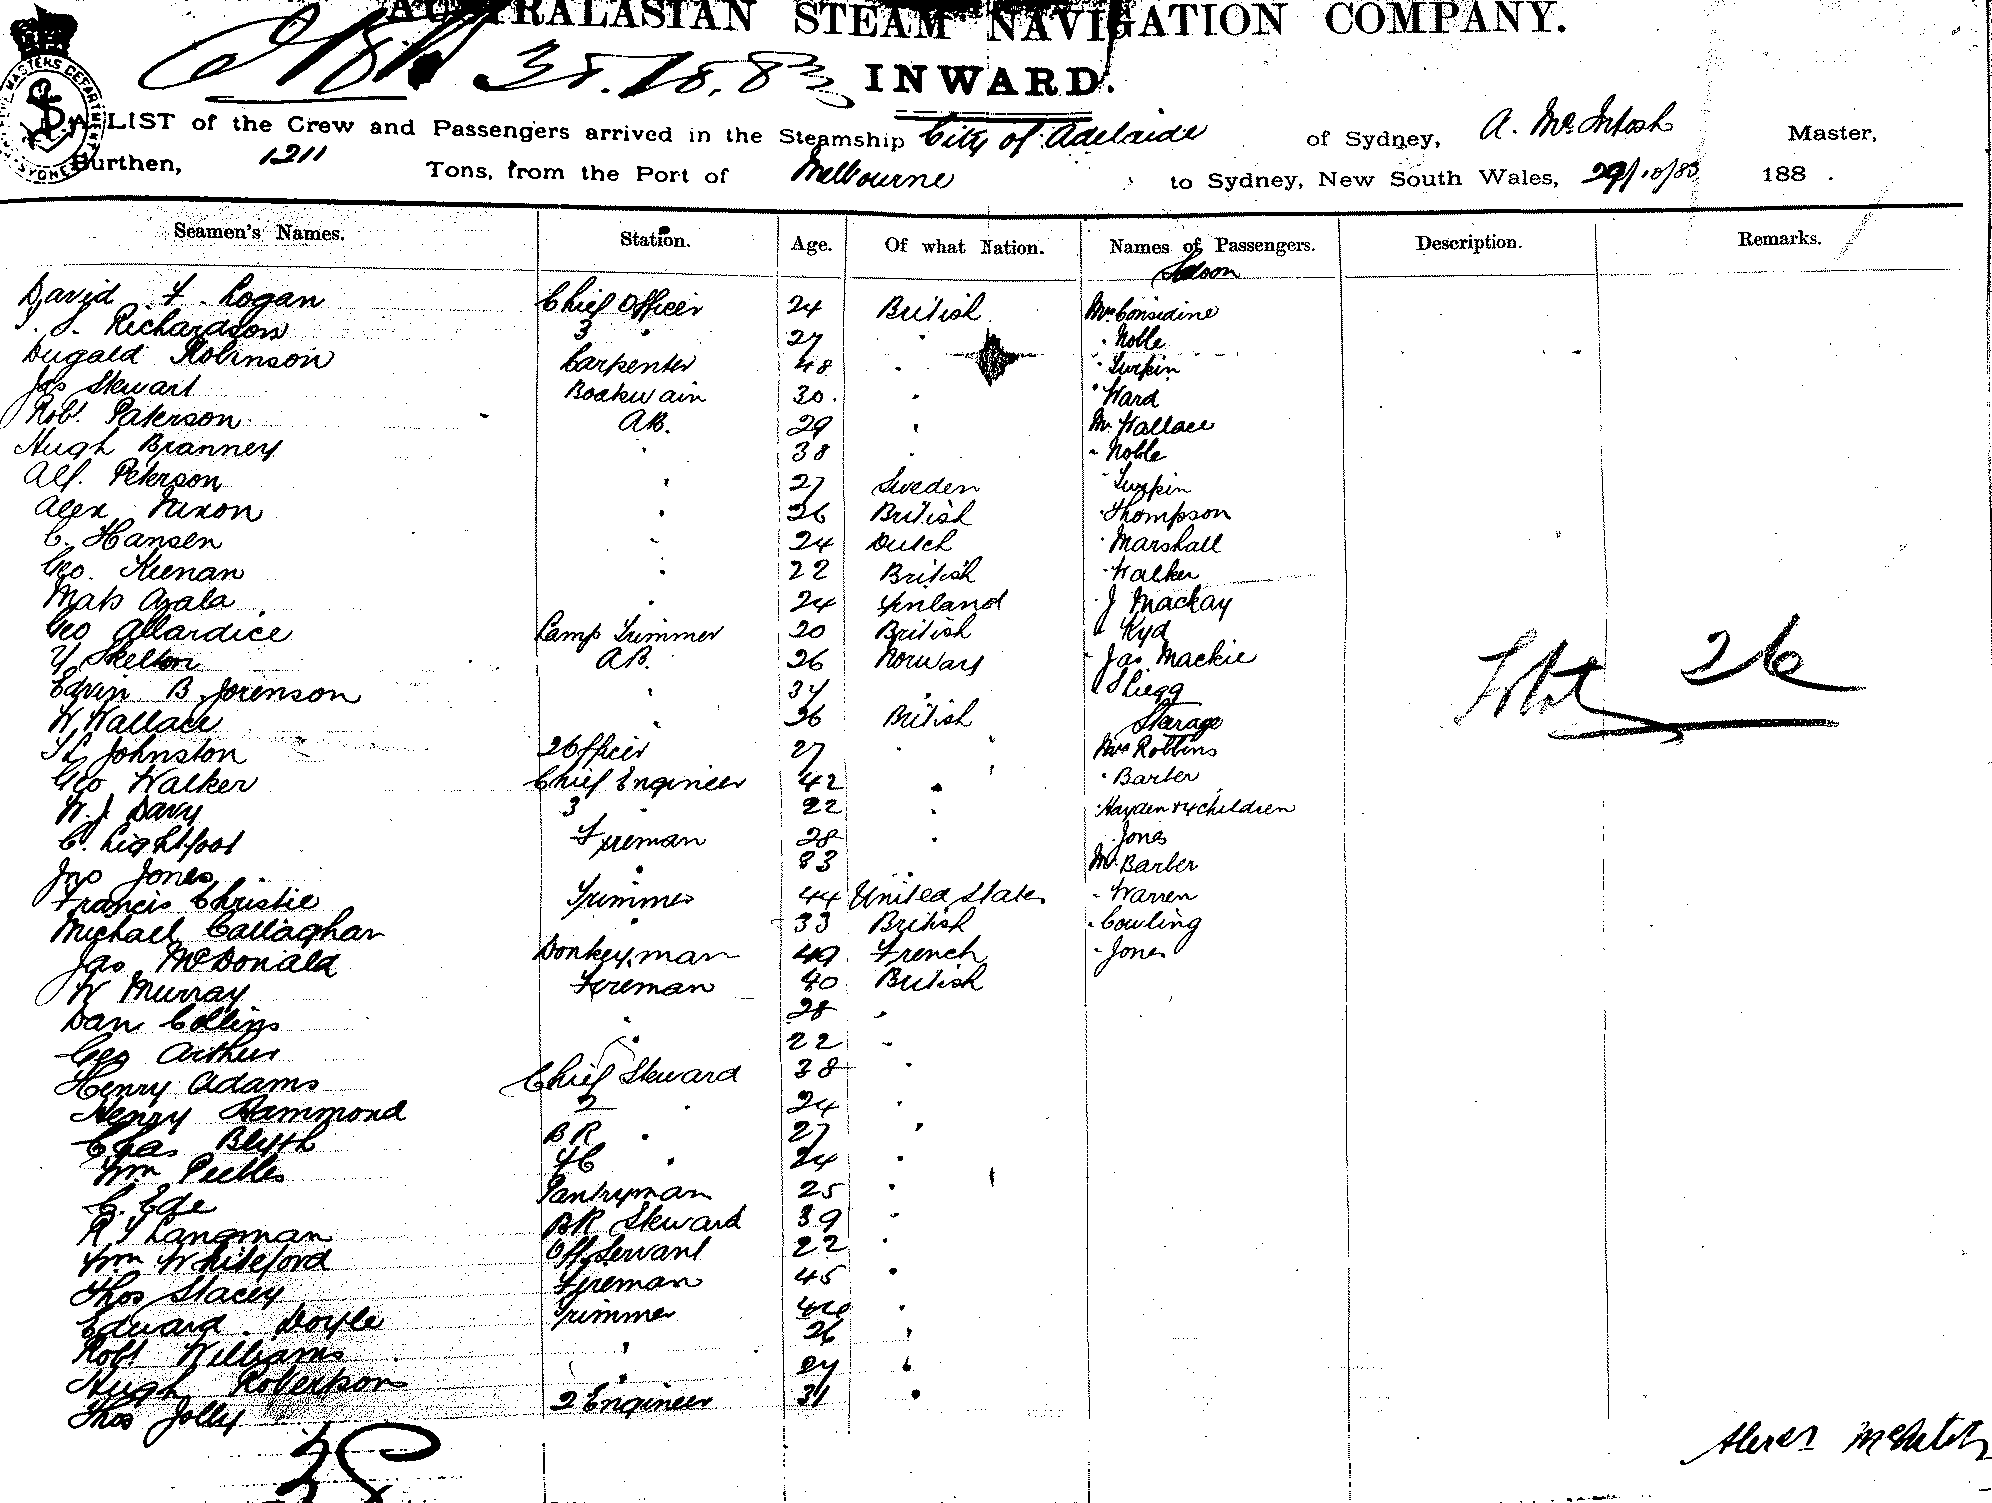 AUSTRALASIAN STEAM NAVIGATION COMPANY.
INWARD.
A LIST of the Crew and Passengers arrived in the Steamship City of Adelaide of Sydney, A. McIntosh Master,
Burthen, 1211 Tons, from the Port of Melbourne to Sydney, New South Wales, 29/10/83 188 .
Seamen's Names. Station. Age. Of what Nation. Names of Passengers. Description. Remarks.
Saloon
David F. Logan Chief Officer 24 British Mrs Considine
Richardson 3 " 27 " " Noble
Dugald Robinson Carpenter 48 " " Turpin
Jas Stewart Boatswain 30 " " Ward
Robt Paterson AB. 29 " Mr Wallace
Hugh Branney " 38 " " Noble
Alf. Peterson " 27 Sweden " Turpin
Alex Nixon " 26 British " Thompson
C. Hansen " 24 Dutch " Marshall
Geo. Keenan " 22 British " Walker
Mats Azala " 24 Finland " J Mackay
Geo Allardice Lamp Trimmer 20 British " Kyd
Skelton AB. 26 Norway " Jas Mackie
Edvin B. Jorenson " 34 " "
W. Wallace " 36 British Sterage
Johnston 2 Officer 27 " Mrs Robbins
Geo Walker Chief Engineer 42 " " Barber
W. J. Davy 3 " 22 " " Hayden & 4 children
C. Lightfoot Fireman 28 " " Jones
Jno Jones " 33 " Mr Barber
Francis Christie Trimmer 44 United States " Warren
Michael Callaghan " 33 British " Cowling
Jas McDonald Donkeyman 49 French " Jones
W Murray Fireman 40 British
Dan Collins " 28 "
Geo Arthur " 22 "
Henry Adams Chief Steward 38 "
Henry Hammond 2 " 24 "
Chas Blyth BR " 27 "
Wm Peebles FC " 24 "
C. Ede Pantryman 25 "
R T Langman BR Steward 39 "
Wm Whiteford Off Servant 22 "
Thos Stacey Fireman 45 "
Edward Doyle Trimmer "
Robt Williams " 26 "
Hugh Robertson " 24 "
Thos Jolly 2 Engineer 31 "
Total 26
38